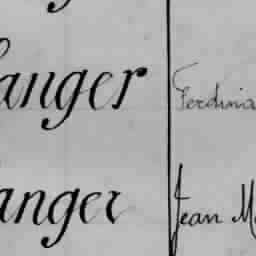 anger Ferdina
anger Jean M